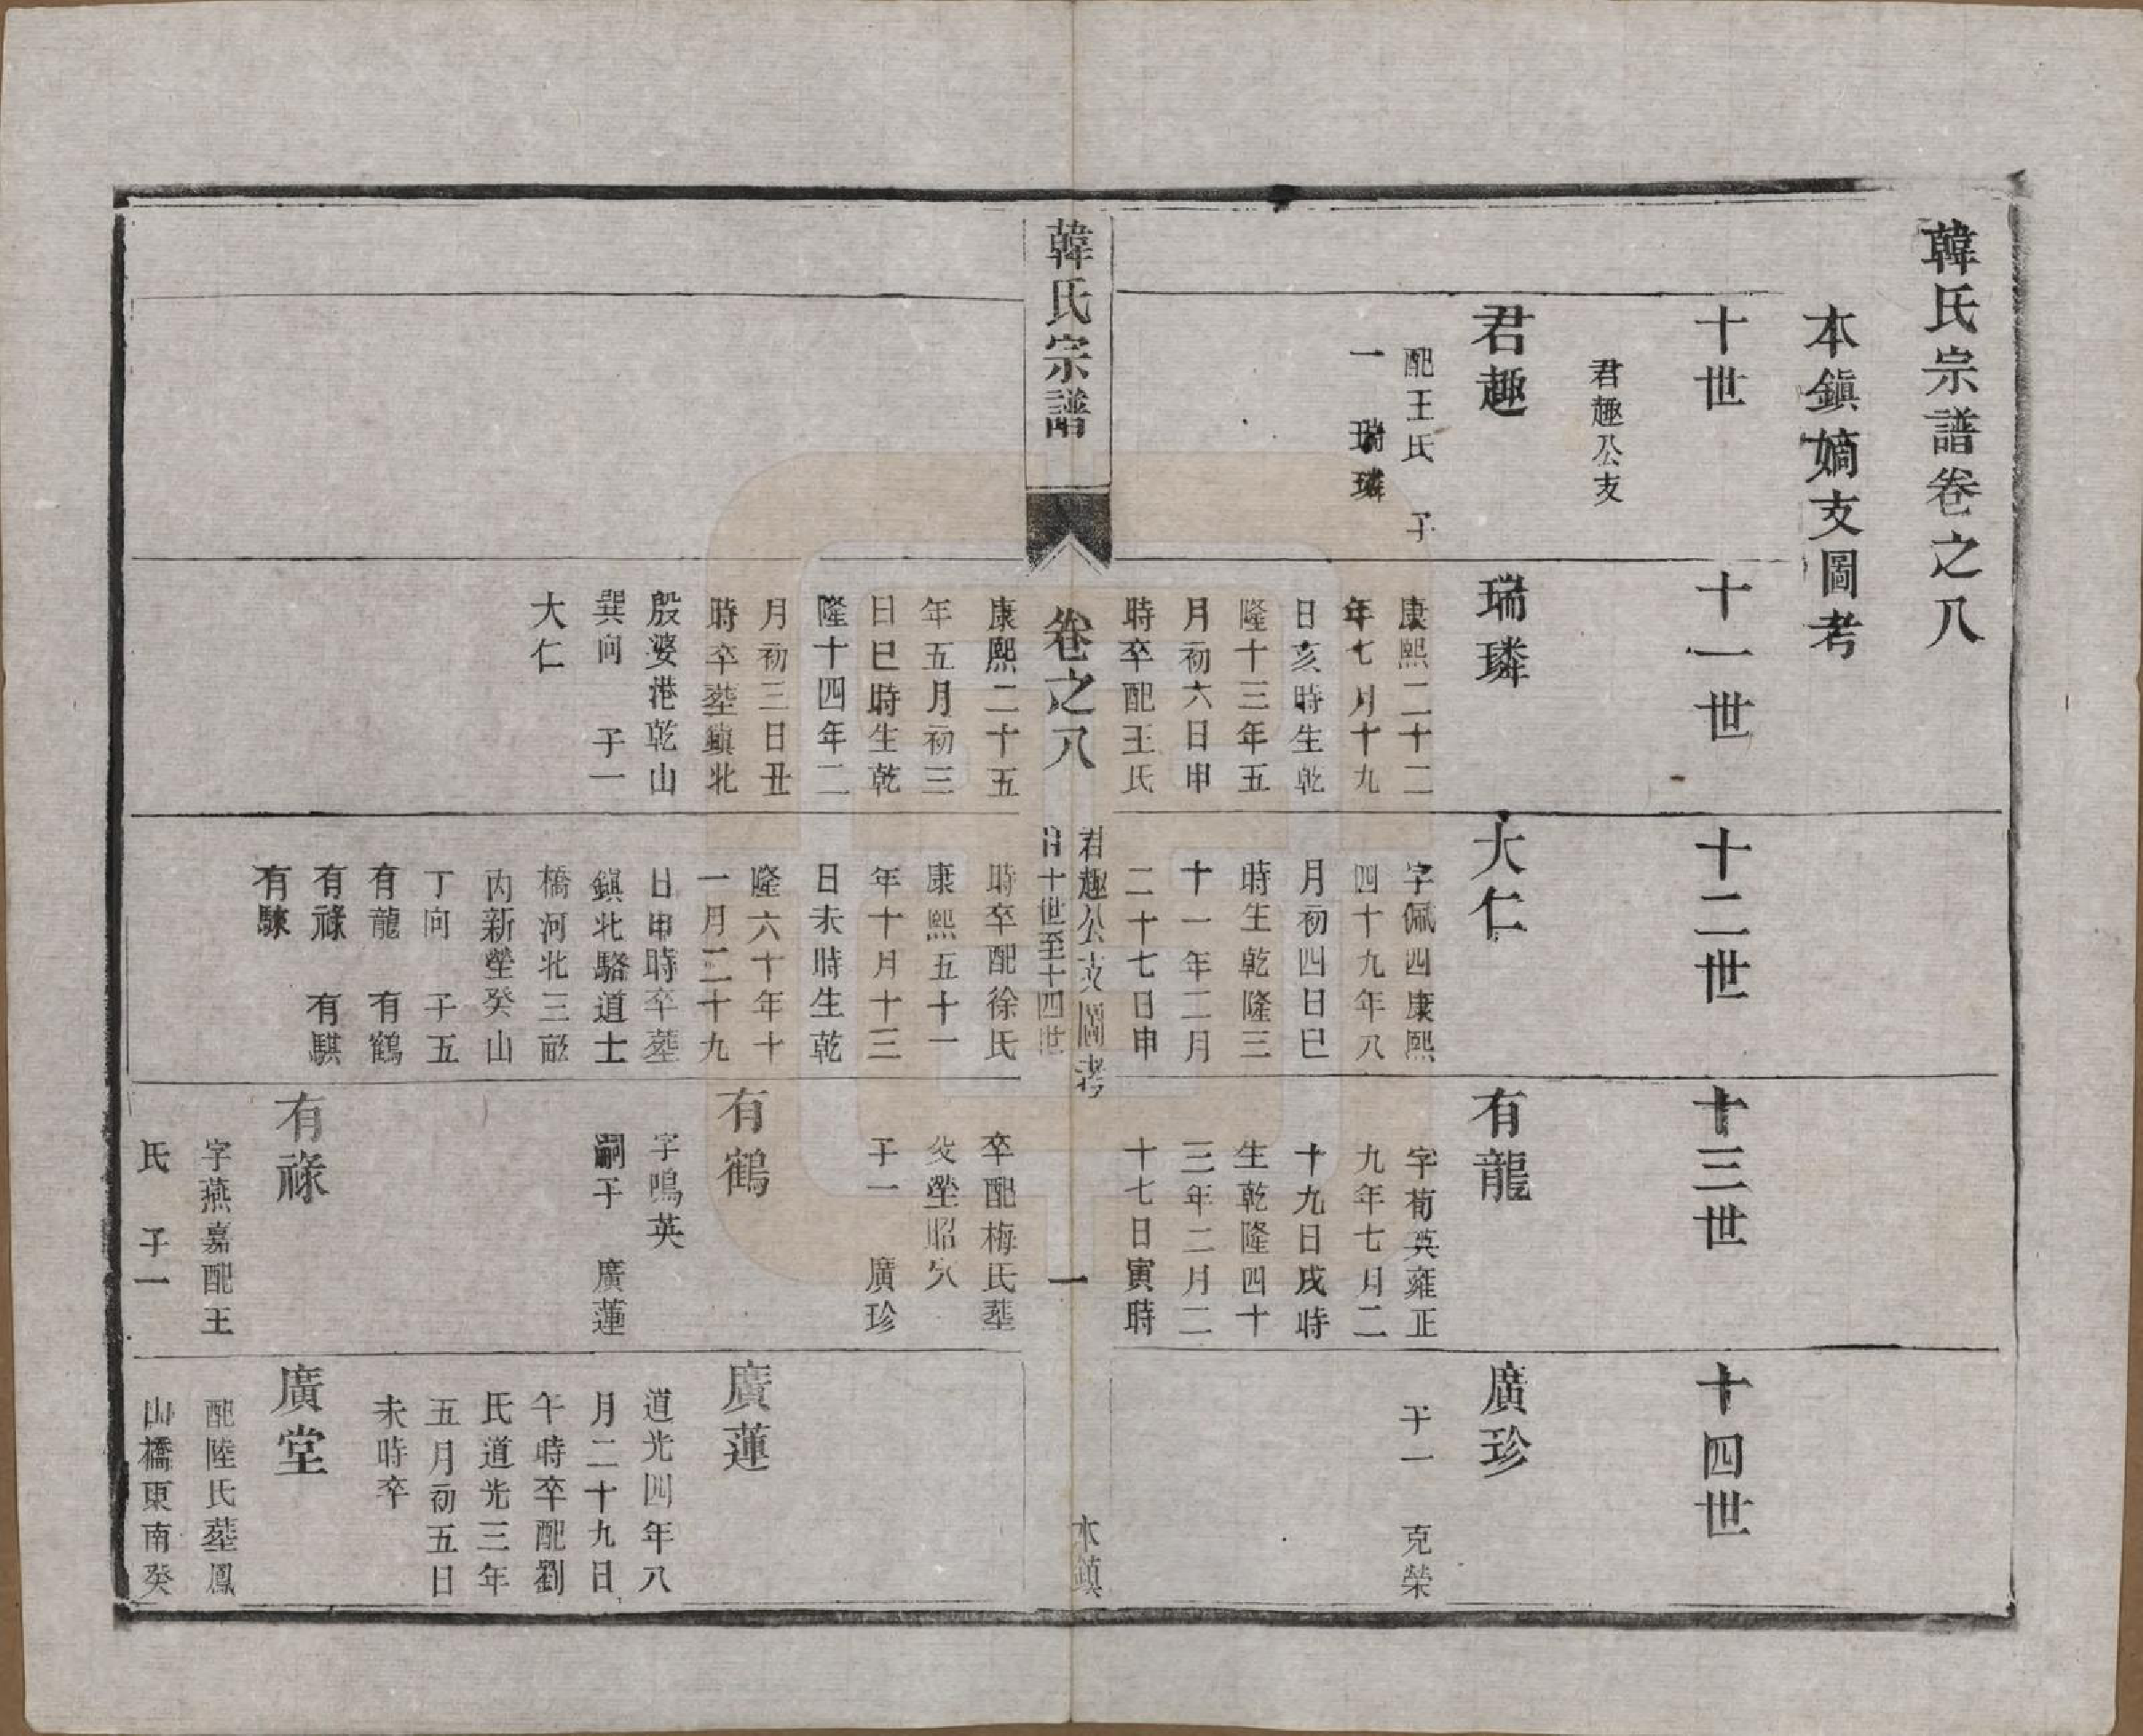 韓氏宗譜卷之八
本鎮嫡支圖考
十世
十一世
十二世
十三世
十四世
君趣公支
君趣
配王氏　子
一　瑞璘
瑞璘
康熙二十二
年七月十九
日亥時生乾
隆十三年五
月初六日申
時卒配王氏
康熙二十五
年五月初三
日巳時生乾
隆十四年二
月初三日丑
時卒塟鎮北
殷婆港乾山
巽向　子一
大仁
大仁
字佩四康熙
四十九年八
月初四日巳
時生乾隆三
十一年二月
二十七日申
時卒配徐氏
康熙五十一
年十月十三
日未時生乾
隆六十年十
一月二十九
日申時卒塟
鎮北駱道士
橋河北三畝
內新塋癸山
丁向　子五
有龍　有鶴
有祿　有騏
有騋
有龍
字荀英雍正
九年七月二
十九日戌時
生乾隆四十
三年二月二
十七日寅時
卒配梅氏塟
父塋昭穴
子一　廣珍
有鶴
字鳴英
嗣子　廣蓮
有祿
字燕嘉配王
氏　子一
廣珍
子一　克榮
廣蓮
道光四年八
月二十九日
午時卒配劉
氏道光三年
五月初五日
未時卒
廣堂
配陸氏塟鳳
山橋東南癸
韓氏宗譜
卷之八
君趣公支圖考
自十世至十四世
一
本鎮